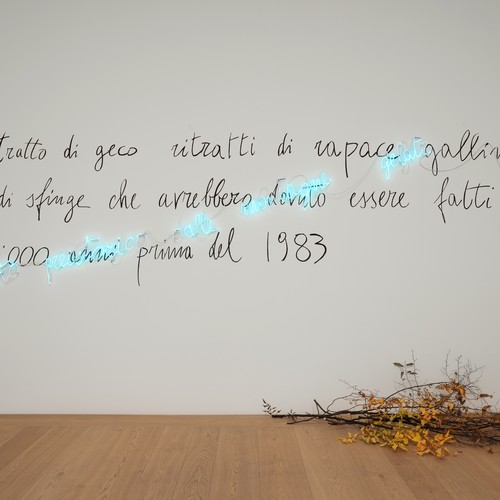 tratto di geco ritratti di rapace gallin
di sfinge che avrebbero dovuto essere fatti
000 anni prima del 1983